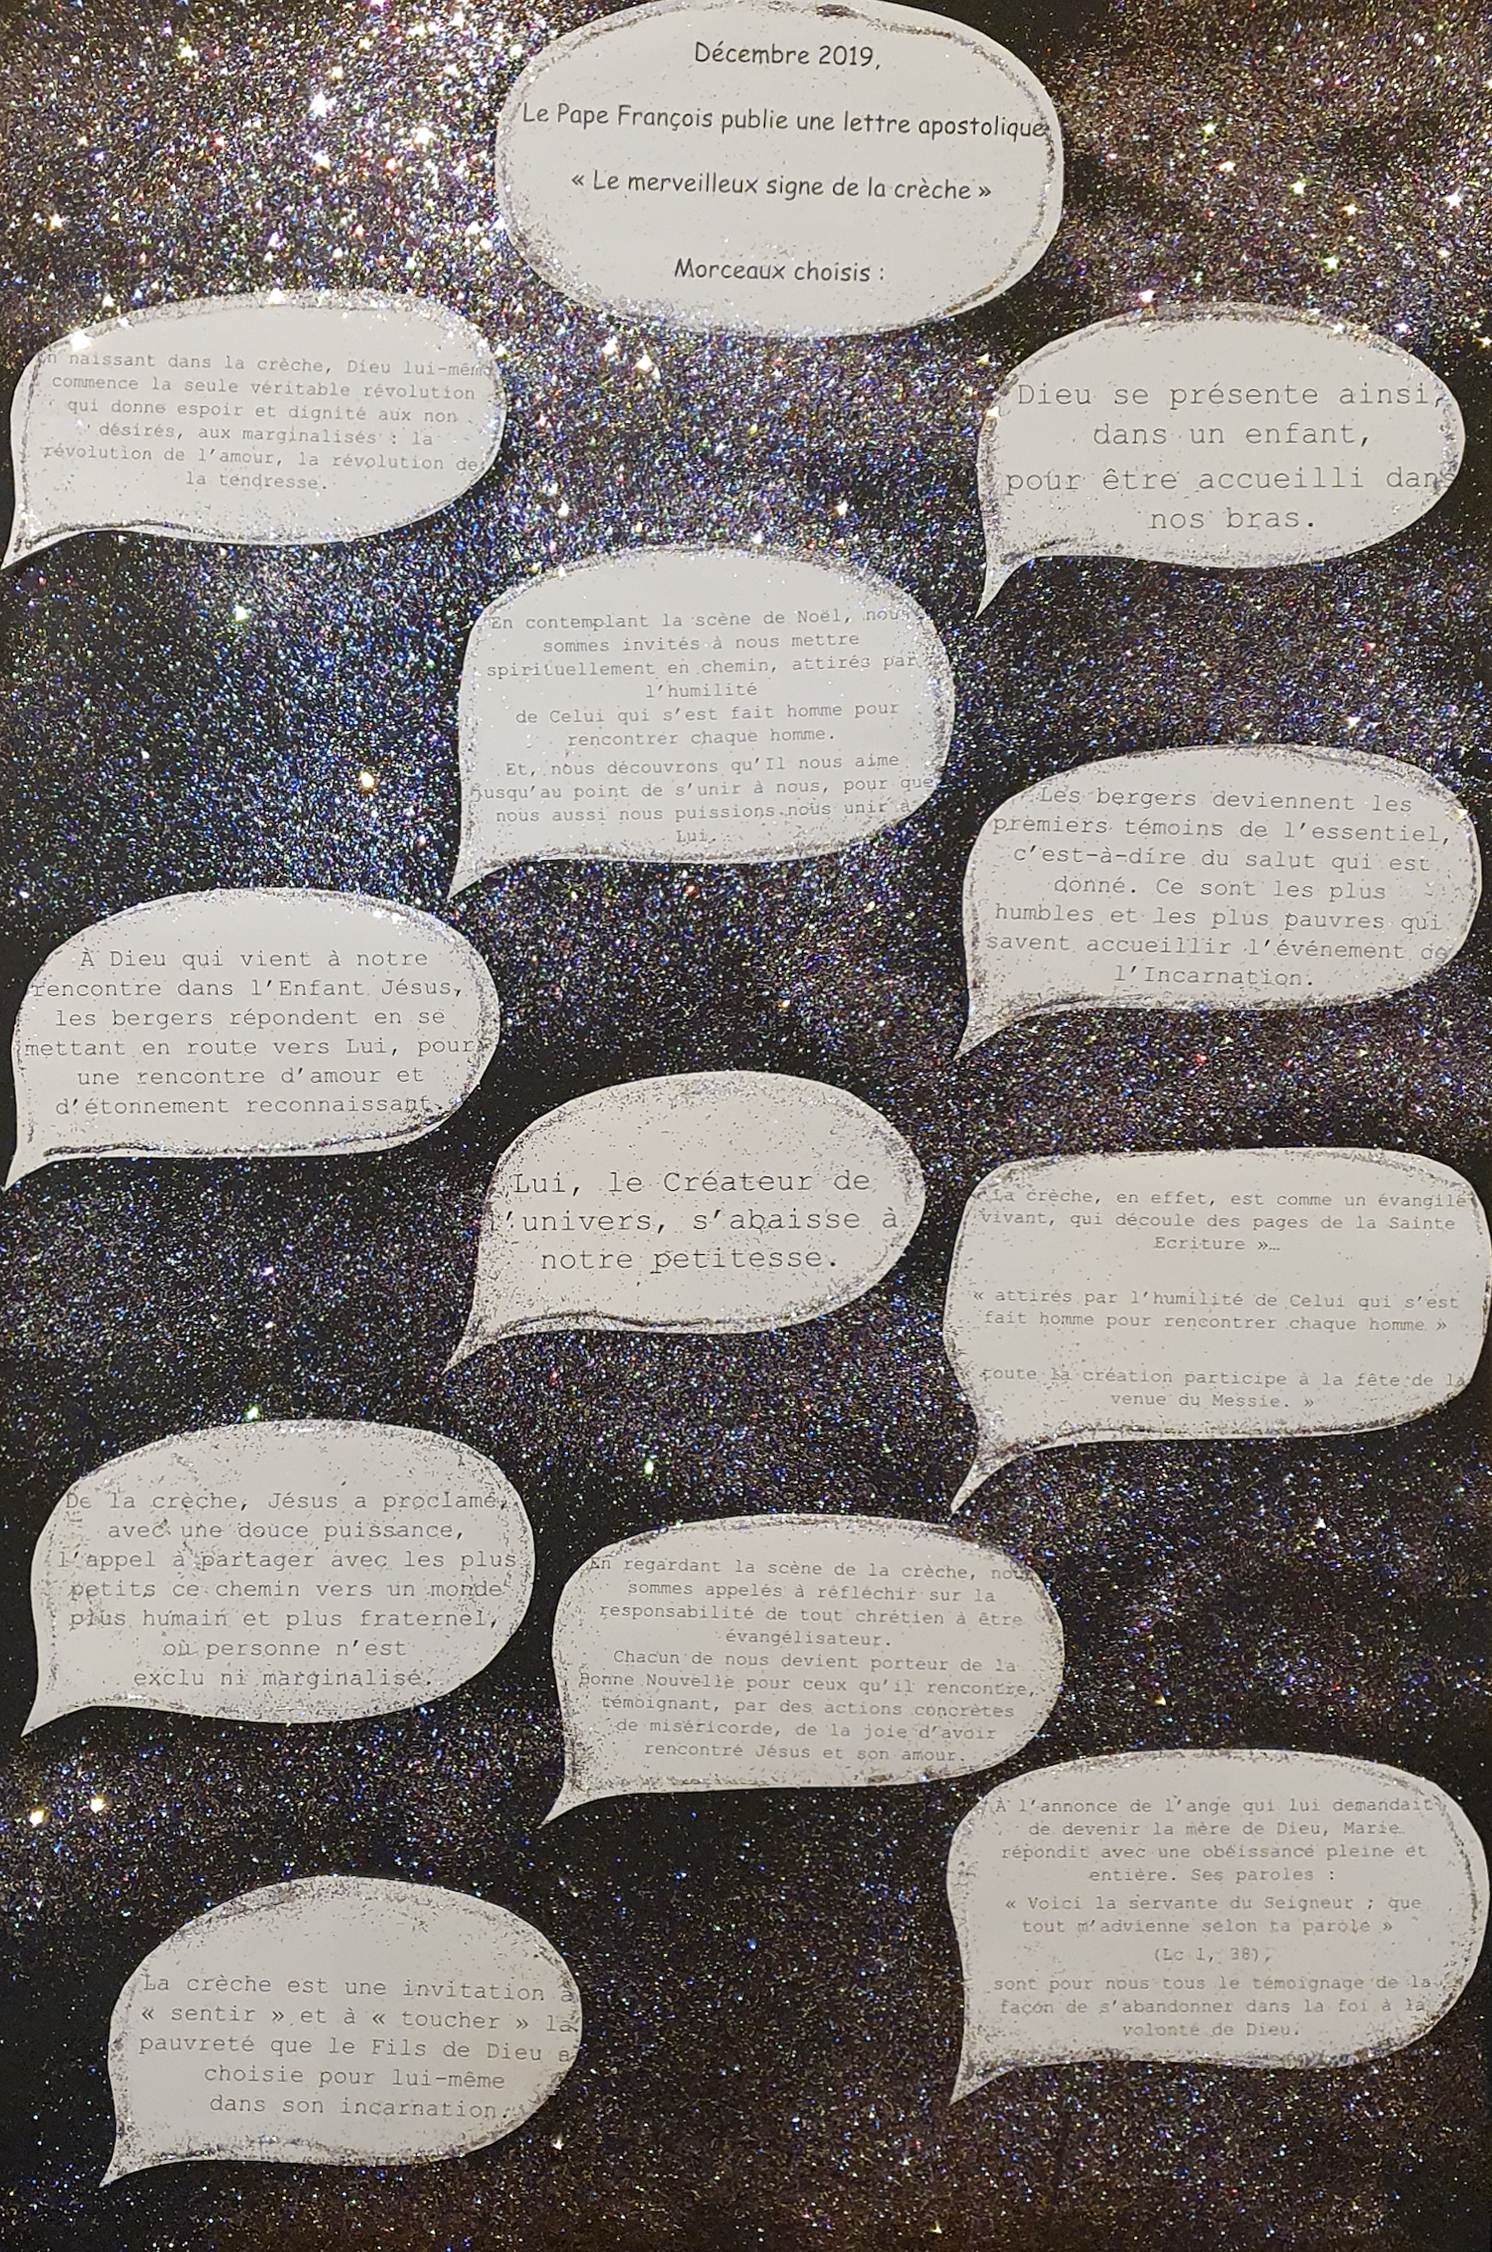 Décembre 2019,
Le Pape François publie une lettre apostolique
« Le merveilleux signe de la crèche »
Morceaux choisis :
En naissant dans la crèche, Dieu lui-même
commence la seule véritable révolution
qui donne espoir et dignité aux non
désirés, aux marginalisés : la
révolution de l’amour, la révolution de
la tendresse.
Dieu se présente ainsi,
dans un enfant,
pour être accueilli dans
nos bras.
En contemplant la scène de Noël, nous
sommes invités à nous mettre
spirituellement en chemin, attirés par
l’humilité
de Celui qui s’est fait homme pour
rencontrer chaque homme.
Et, nous découvrons qu’Il nous aime
jusqu’au point de s’unir à nous, pour que
nous aussi nous puissions nous unir à
Lui.
Les bergers deviennent les
premiers témoins de l’essentiel,
c’est-à-dire du salut qui est
donné. Ce sont les plus
humbles et les plus pauvres qui
savent accueillir l’événement de
l’Incarnation.
À Dieu qui vient à notre
rencontre dans l’Enfant Jésus,
les bergers répondent en se
mettant en route vers Lui, pour
une rencontre d’amour et
d’étonnement reconnaissant.
Lui, le Créateur de
l’univers, s’abaisse à
notre petitesse.
La crèche, en effet, est comme un évangile
vivant, qui découle des pages de la Sainte
Ecriture »…
« attirés par l’humilité de Celui qui s’est
fait homme pour rencontrer chaque homme »
toute la création participe à la fête de la
venue du Messie. »
De la crèche, Jésus a proclamé,
avec une douce puissance,
l’appel à partager avec les plus
petits ce chemin vers un monde
plus humain et plus fraternel,
où personne n’est
exclu ni marginalisé.
En regardant la scène de la crèche, nous
sommes appelés à réfléchir sur la
responsabilité de tout chrétien à être
évangélisateur.
Chacun de nous devient porteur de la
Bonne Nouvelle pour ceux qu’il rencontre,
témoignant, par des actions concrètes
de miséricorde, de la joie d’avoir
rencontré Jésus et son amour.
À l’annonce de l’ange qui lui demandait
de devenir la mère de Dieu, Marie
répondit avec une obéissance pleine et
entière. Ses paroles :
« Voici la servante du Seigneur ; que
tout m’advienne selon ta parole »
(Lc 1, 38),
sont pour nous tous le témoignage de la
façon de s’abandonner dans la foi à la
volonté de Dieu.
La crèche est une invitation à
« sentir » et à « toucher » la
pauvreté que le Fils de Dieu a
choisie pour lui-même
dans son incarnation.